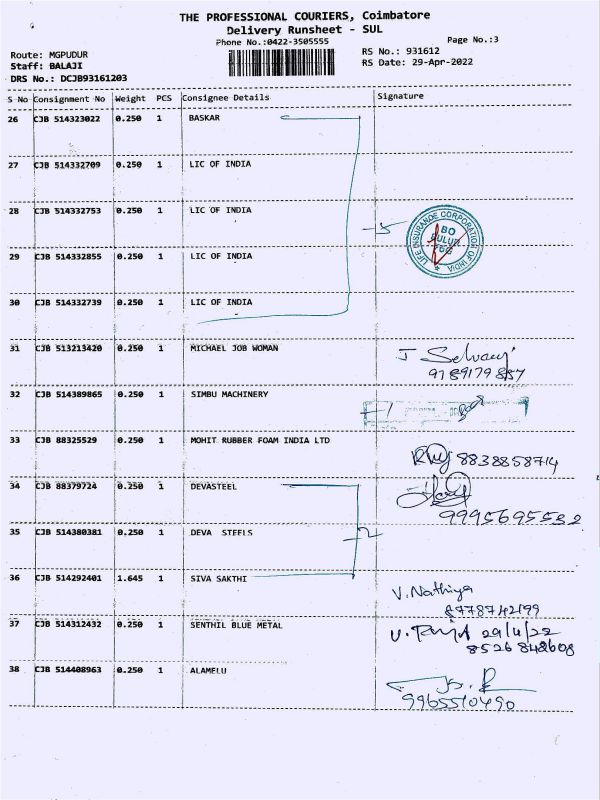 THE PROFESSIONAL COURIERS, Coimbatore
Delivery Runsheet - SUL
Phone No.:0422-3505555
Page No.:3
Route: MGPUDUR
RS No.: 931612
Staff: BALAJI
RS Date: 29-Apr-2022
DRS No.: DCJB93161203
S No Consignment No Weight PCS Consignee Details Signature
26 CJB 514323022 0.250 1 BASKAR
27 CJB 514332709 0.250 1 LIC OF INDIA
28 CJB 514332753 0.250 1 LIC OF INDIA
5
LIFE INSURANCE CORPORATION OF INDIA
BO
SULUR
29 CJB 514332855 0.250 1 LIC OF INDIA
30 CJB 514332739 0.250 1 LIC OF INDIA
31 CJB 513213420 0.250 1 MICHAEL JOB WOMAN
9789179857
32 CJB 514389865 0.250 1 SIMBU MACHINERY
33 CJB 88325529 0.250 1 MOHIT RUBBER FOAM INDIA LTD
8838858714
34 CJB 88379724 0.250 1 DEVASTEEL
9995695532
35 CJB 514380381 0.250 1 DEVA STEELS
2
36 CJB 514292401 1.645 1 SIVA SAKTHI
V. Nathiya
8778742199
37 CJB 514312432 0.250 1 SENTHIL BLUE METAL
29/4/22
8526848608
38 CJB 514408963 0.250 1 ALAMELU
9965510490